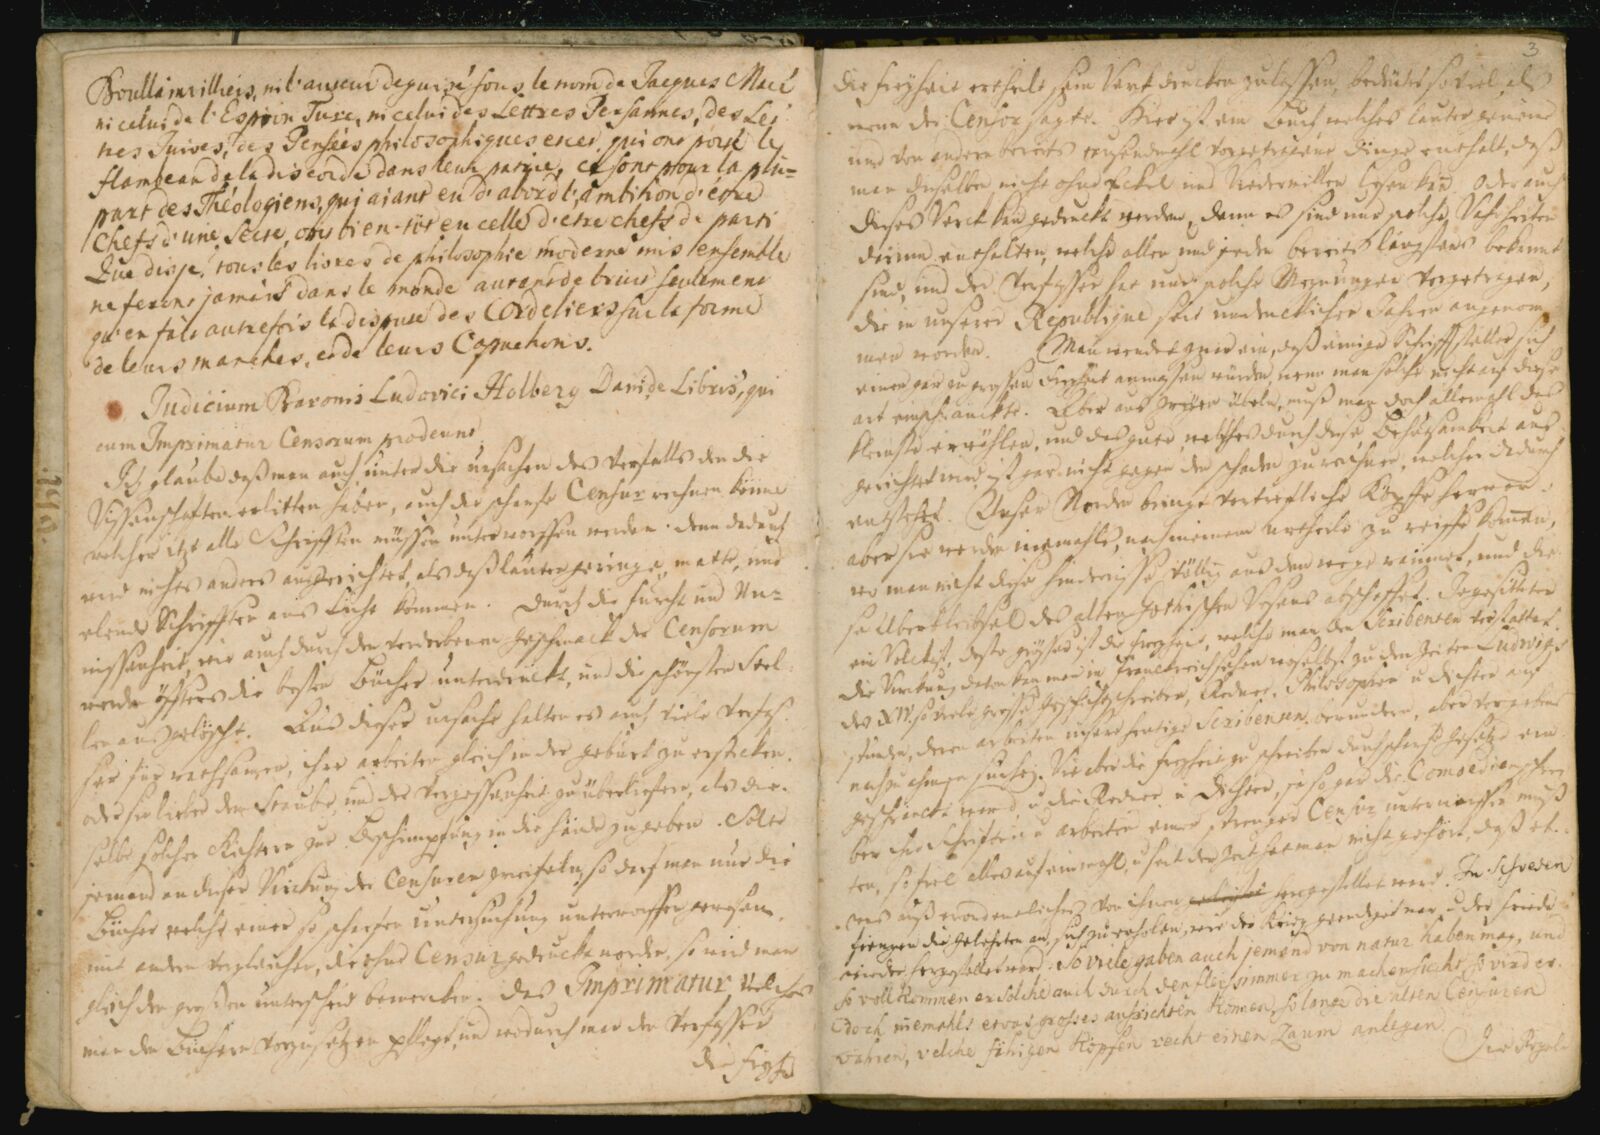 Boullainvilliers, ni l'auteur deguisé sous le nom de Jacques Macé
ni celui de l'Espion Turc, ni celui des Lettres Persannes, des Let
tres Juives, des Pensées philosophiques etc: qui ont porté le
flambeau de la discorde dans leur patrie, ce sont pour la plu=
part des Théologiens, qui aiant eu d'abord l'ambition d'être
Chefs d'une Secte, ont bien-tôt eu celle d'etre chefs de parti
Que disje, tous les livres de philosophie moderne mis ensemble
ne feront jamais dans le monde autant de bruit seulement
qu'en fait autrefois la dispute des Cordeliers sur la forme
de leurs manches, et de leurs Capuchons.
Judicium Baronis Ludovici Holberg Dani de Libris, qui
cum Imprimatur Censorum prodeunt
Ich glaube daß man auch unter die ursachen des Verfalls den die
Wissenschaften erlitten haben, auch die scharfe Censur rechnen könne
welcher itzt alle Schrifften müssen unterworffen werden. denn dadurch
wird nichts anders ausgerichtet, als daß lauter geringe, matte, und
elende Schrifften ans Licht kommen. Durch die furcht und Un=
wissenheit, wie auch durch den verderbenen geschmack der Censorum
werden öffters die besten Bücher unterdruckt, und die schönsten Stel=
len ausgelöscht. Aus dieser ursache halten es auch viele Verfas=
ser für rathsamer, ihre arbeiten gleich in der geburt zu ersticken.
oder sie lieber dem Staube und der Vergessenheit zu überliefern, als die=
selbe solchen Richtern zur Beschimpfung in die hände zu geben. Solte
jemand an dieser Würkung der Censuren zweifeln, so darf man nur die
Bücher welche einer so scharfen untersuchung unterworffen gewesen,
mit andern vergleichen, die ohne Censur gedruckt worden, so wird man
gleich den großen unterscheid bemercken. Das Imprimatur, welches
man den Büchern vorzusetzen pflegt, und wodurch man den Verfasser
die Freyh
3
die freyheit ertheilt, sein Werk drucken zu lassen, bedeutet so viel, als
wenn der Censor sagte. Hier ist ein Buch welches lauter gemeine
und von andern bereits tausendmahl vorgetragene dinge enthält, daß
man dieselben nicht ohne Eckel und Wiederwillen lesen kan. Oder auch
dieses Werck kan gedruckt werden, denn es sind nur solche Wahrheiten
darinn enthalten, welche allen und jeden bereits längstens bekannt
sind, und der Verfasser hat nur solche Meynungen vorgetragen,
die in unserer Republique seit undencklichen Jahren angenom
men worden. Man wendet zwar ein, daß einige Schrifftsteller sich
eine gar zu grosse Freyheit anmassen würden, wenn man solche nicht auf diese
art einschränckte. Aber aus zweyen übeln, muß man doch allemahl das
kleinste erwählen, und das gute, welches durch diese Behutsamkeit aus=
gerichtet wird, ist gar nicht gegen den schaden zu rechnen, welcher dadurch
entstehet. Unser Norden bringt vortrefliche Köpffe hervor.
aber sie werden niemahls, nach meinem urtheile zu reiffe kommen,
wo man nicht diese hinderniße völlig aus dem wege räumet, und die=
se Uberbleibsel des alten Gothischen Wesens abschaffet. Je gesitteter
ein Volck ist, desto grösser ist die freyheit, welche man den Scribenten verstattet.
Die Würkung davon kan man in Franckreich sehen woselbst zu den Zeiten Ludwigs
des XIV. so viele grosse geschichtschreiber, Redner, Philosophen u. dichter auf
stunden, deren arbeiten unsere heutige Scribenten bewundern, aber vergebens
nachzuahmen suchen. Wie aber die freyheit zu schreiben durch scharfe gesetze ein
geschränckt ward, u. die Redner u. Dichter, ja so gar die Comoedianten
ihre Schrifften u. arbeiten einer strengen Censur unterwerffen mus
ten, so fiel alles auf einmahl, u. seit der Zeit hat man nicht gehört, daß et=
was außerordentliches von ihnen hergestellet ward. In Schweden
fiengen die gelehrten an, sich zu erholen, wie der Krieg geendiget war, u. der friede
wieder hergestellet ward. So viele gaben auch jemand von natur haben mag, und
so vollkommen er solche auch durch den fleis immer zu machen sucht, so wird er
doch niemahls etwas grosses ausrichten können, so lange die alten Censuren
währen, welche fähigen Köpfen recht einen Zaum anlegen
Die Regeln